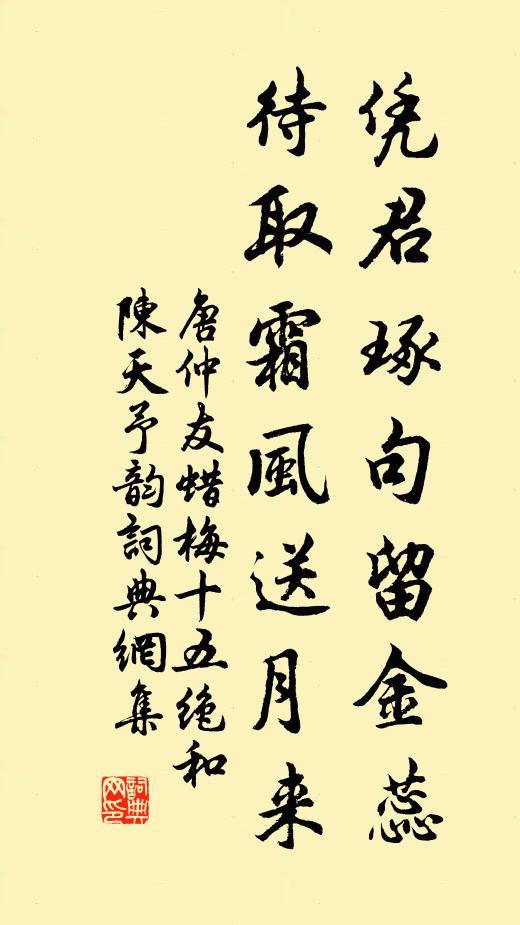 凭君琢句留金蕊
待取霜風送月来
唐仲友蜡梅十五绝和
陳天予韵詞典網集
詞典
网印